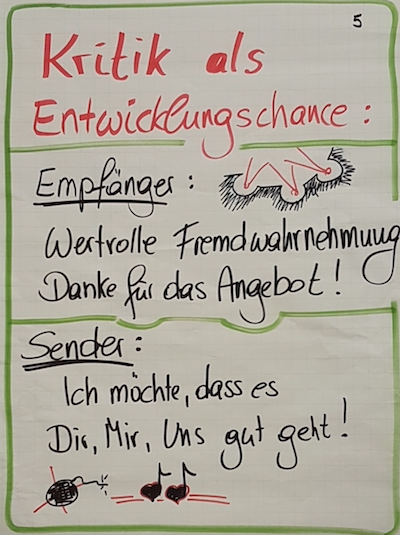 5
Kritik als
Entwicklungschance:
Empfänger:
Wertvolle Fremdwahrnehmung
Danke für das Angebot!
Sender:
Ich möchte, dass es
Dir, Mir, Uns gut geht!